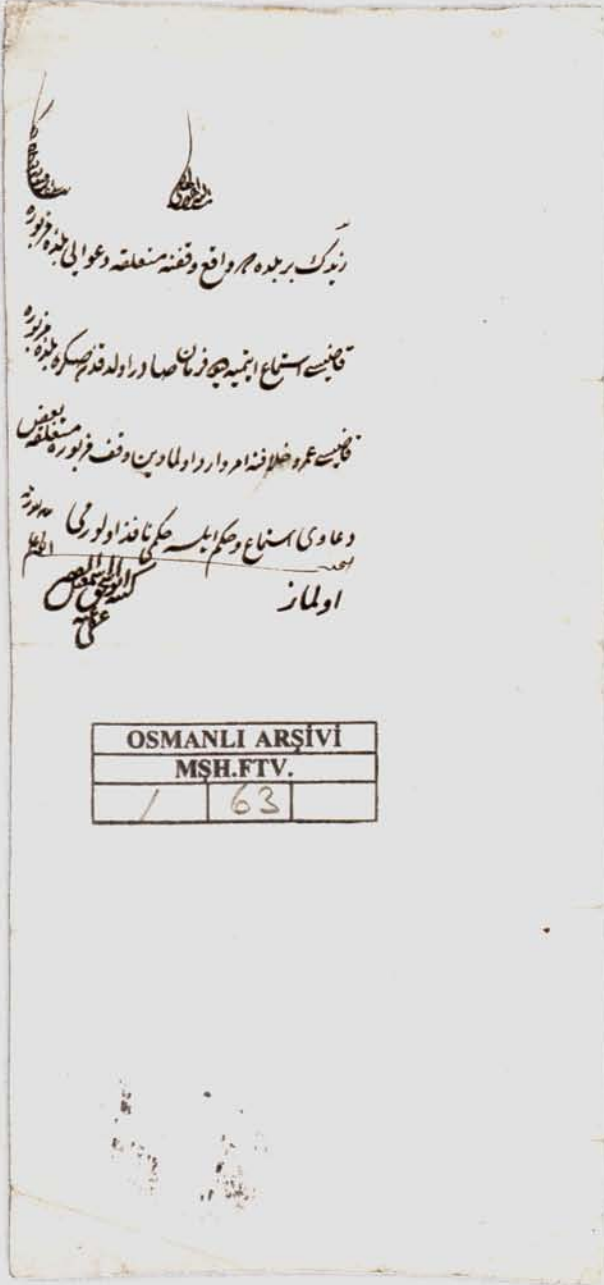 زيدك بر بلده ده واقع وقفنه متعلقه دعوايى بلده مزبوره
قاضيسى استماع ايتميه ديو فرمان صادر اولدقدنصكره بلده مزبوره
قاضيسى عمرو خلافنه امر وارد اولمادين وقف مزبوره متعلقه بعض
دعاوى استماع و حكم ايلسه حكمى نافذ اولورمى
الجواب
اولماز
كتبه ابو اسحق اسمعيل الفقير
عفى عنه
OSMANLI ARŞİVİ
MŞH.FTV.
/ 63